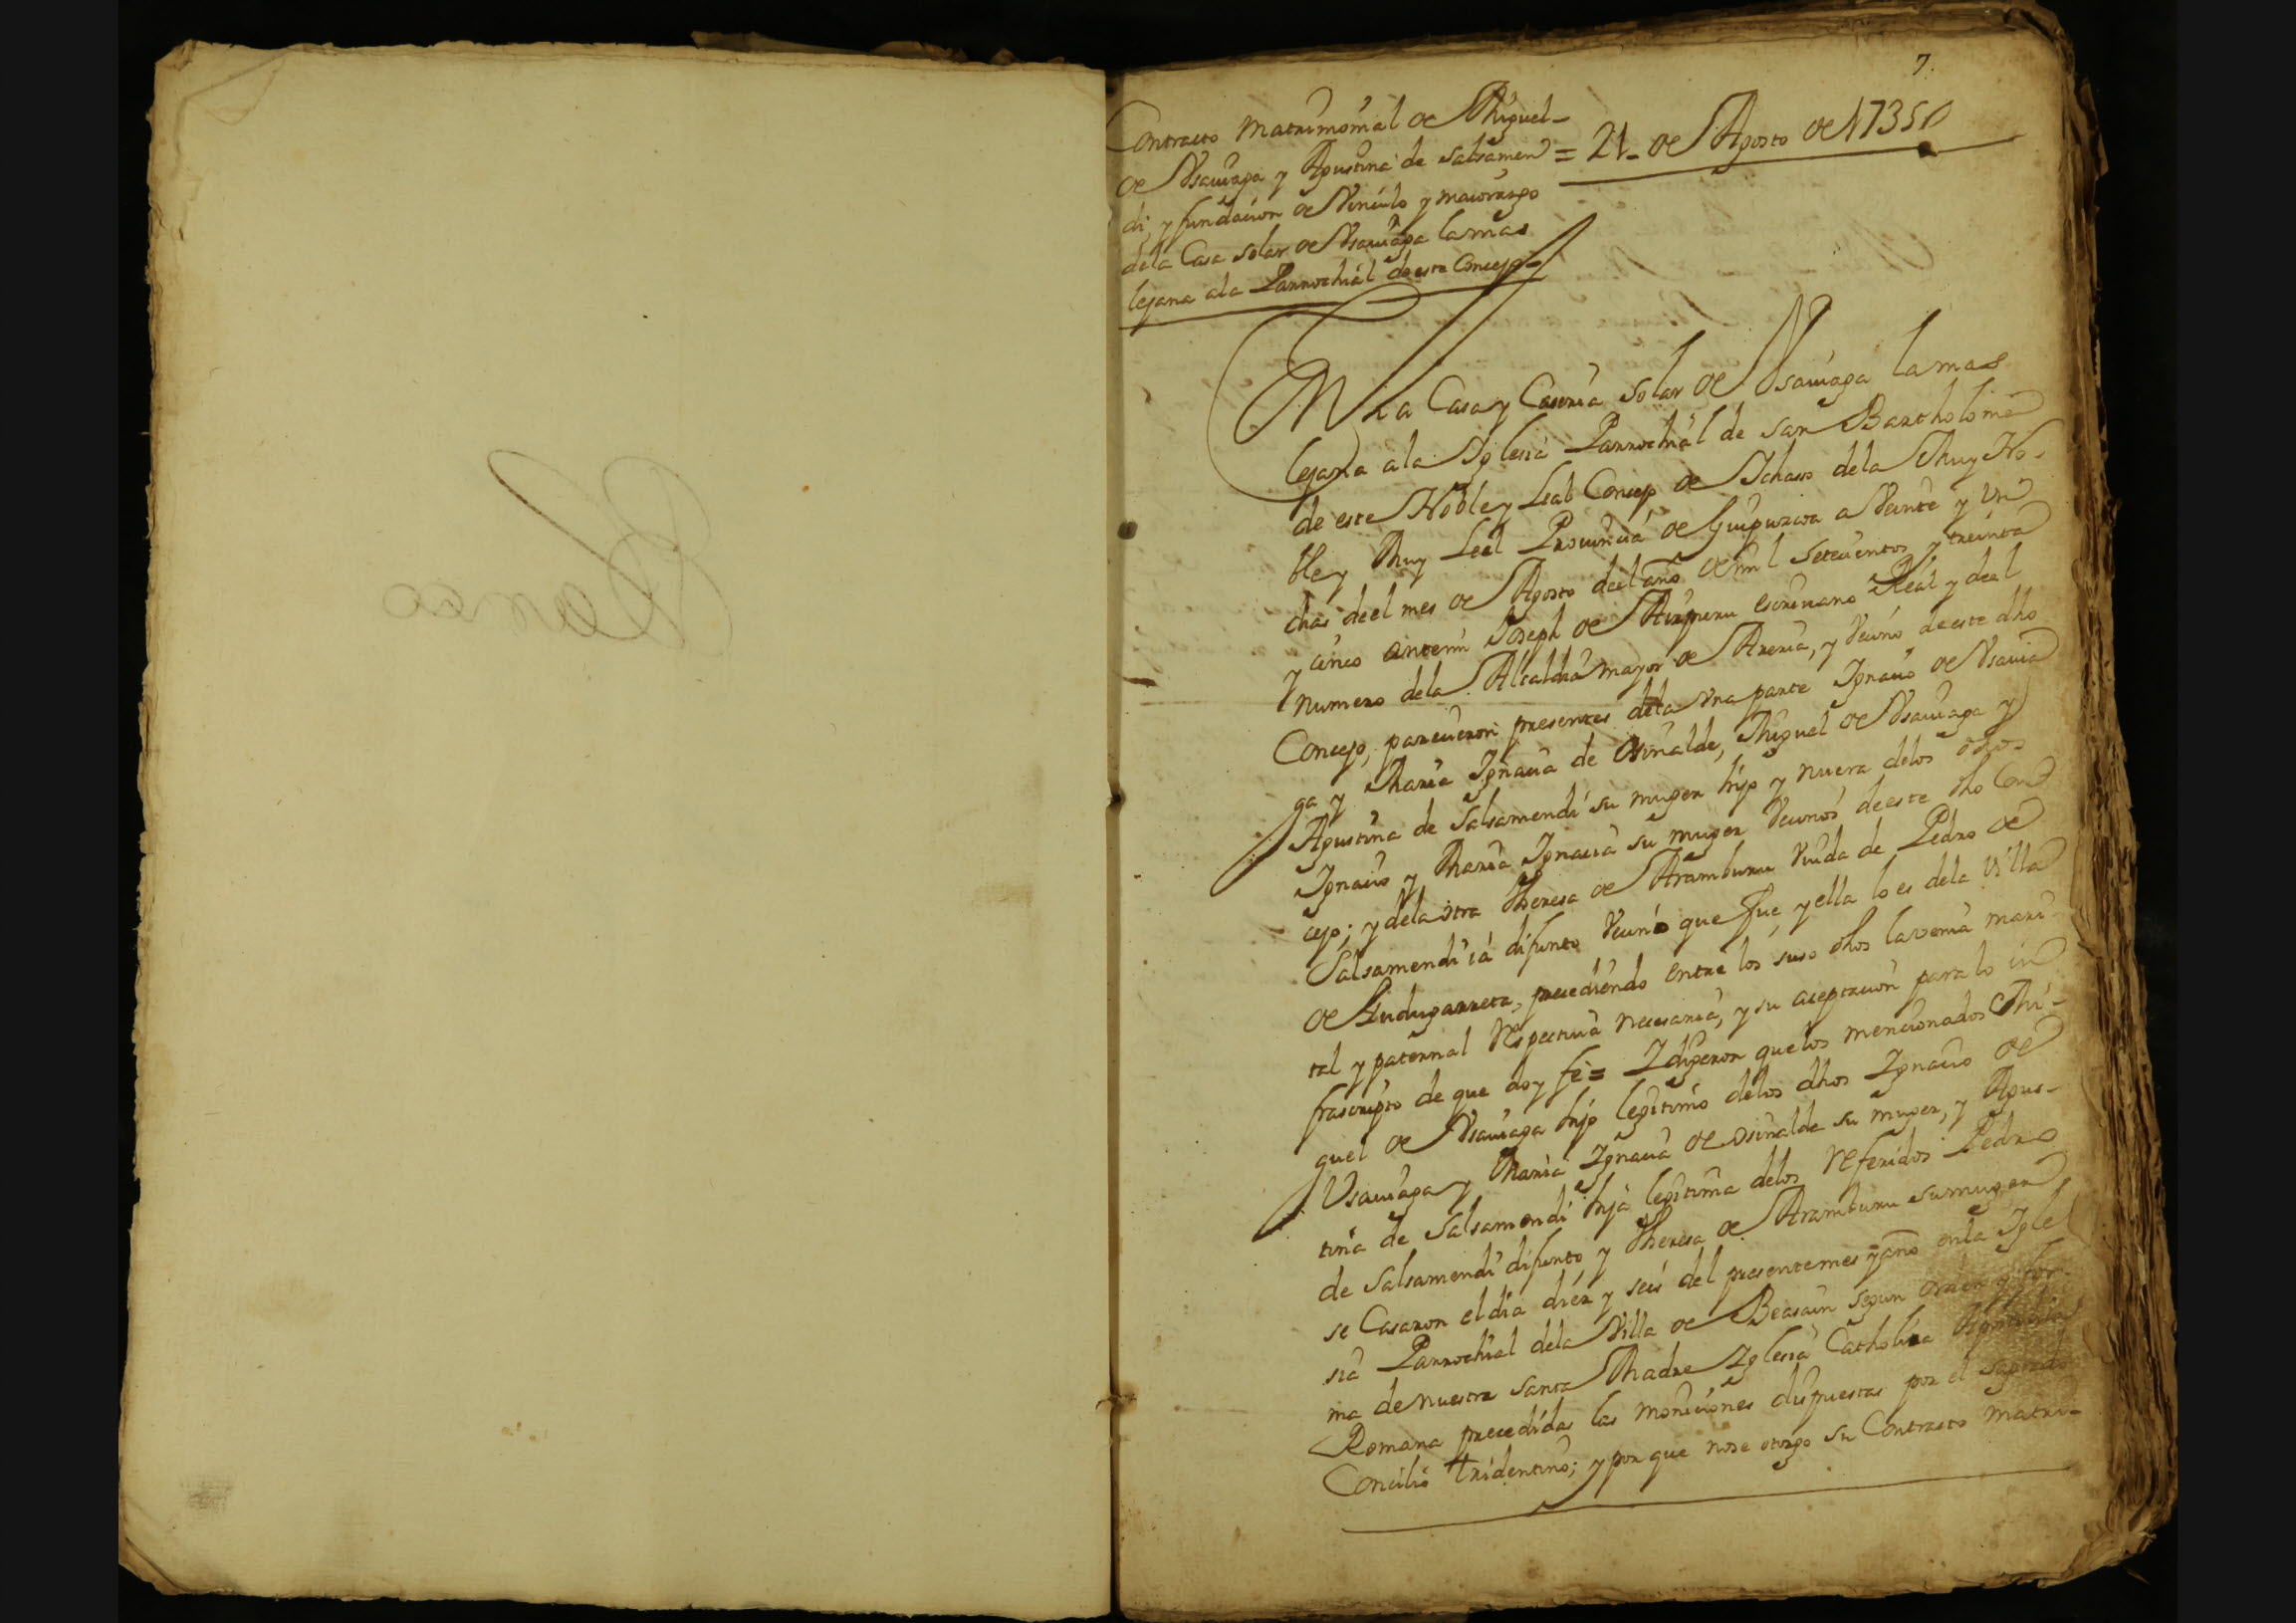 7.
Contracto Matrimonial de Miguel-
de Vsauiaga y Agustina de Salsamen = 21- de Agosto de 1735
di, y fundacion de Vinculo y maiorazgo
dela Casa solar de Vsauiaga lamas
lejana ala Parrochial de este Concejo-
EN la Casa y Caseria solar de Vsauiaga lamas
lejana ala Iglesia Parrochial de san Bartholome
de este Noble y Leal Concejo de Ichaso dela Muy No-
ble y Muy Leal Prouincia de Guipuzcoa a Veinte y Vn
dias deel mes de Agosto deel año de mil Setecientos y treinta
y cinco antemi Joseph de Aizpuru escriuano Real y deel
Numero dela Alcaldia mayor de Areria, y Vecino de este dho
Concejo, parecieron presentes dela Vna parte Ignacio de Vsauia
ga y Maria Ignacia de Osinalde, Miguel de Vsauiaga y
Agustina de Salsamendi su muger hijo y nuera delos dhos
Ignacio y Maria Ignacia su muger Vecinos de este dho Con
cejo; y dela otra Theresa de Aramburu Viuda de Pedro de
Salsamendi ia difunto Vecino que fue, y ella lo es dela Villa
de Gudugarreta, precediendo entre los suso dhos la venia mari-
tal y paternal respectiua necesaria, y su aceptacion para lo in
frascripto de que doy fe = I dijeron que los mencionados Mi-
guel de Vsauiaga hijo legitimo delos dhos Ignacio de
Vsauiaga y Maria Ignacia de Osinalde su muger, y Agus-
tina de Salsamendi hija legitima delos referidos Pedro
de Salsamendi difunto y Theresa de Aramburu su muger
se Casaron el dia diez y seis del presente mes y año en la Igle
sia Parrochial dela Villa de Beasain segun orden y for-
ma de nuestra Santa Madre Iglesia Catholica Apostolica
Romana precedidas las moniciones dispuestas por el sagrado
Concilio tridentino; y por que nose otorgo su Contracto matri-